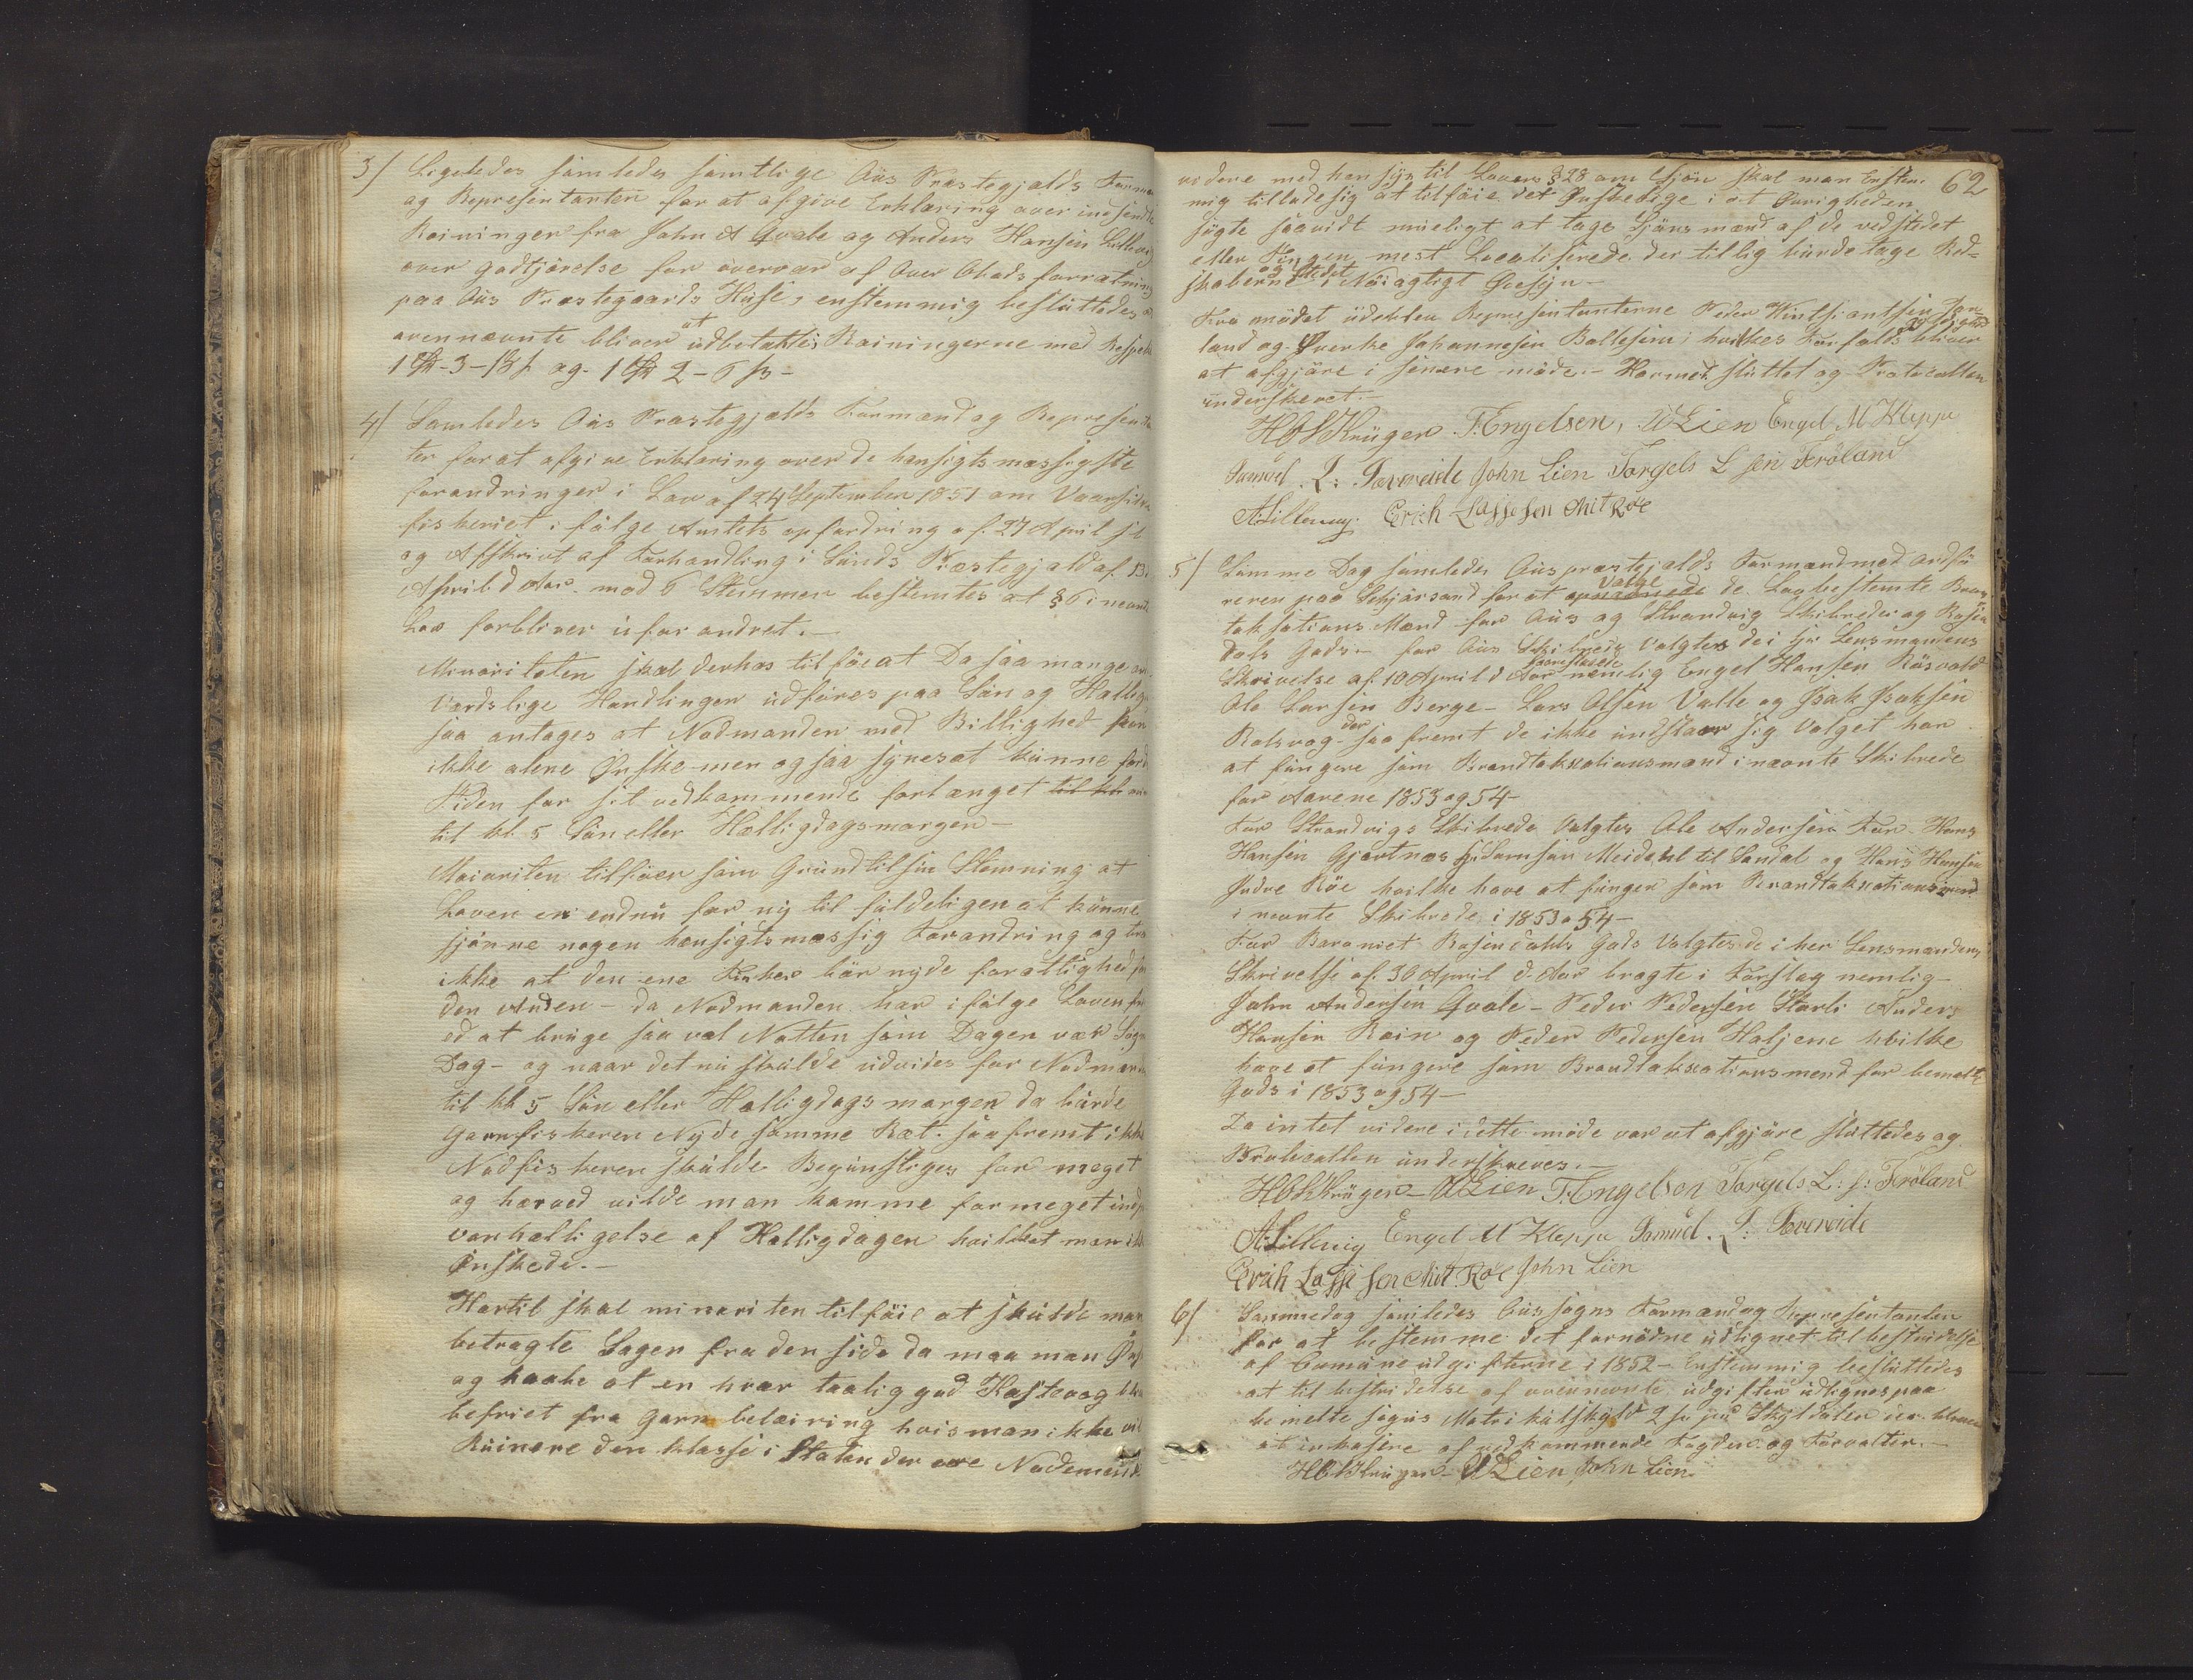 3/ Ligeledes samledes samtlige Ous Præstegjælds Formæ
og Repræsintanter for at afgive Erklæring over indsendte
Reininger fra John A Qvale og Anders Hansen Lillevig
over godtjörelse for overvær af Over Abods forrætning
paa Ous Præstegaards Huse, enstemmig besluttedes
ovennævnte bliver at udbetaltes Reiningerne med Respek
1 Spd - 3 - 18 s og 1 Spd 2 - 6 s -
4/ Samledes Ous Præstegjælds Formænd og Represen
ter for at afgive Erklæring over de hensigtsmæssigste
forandringer i Lov af 24 September 1851 om Vaarsilde
fiskeriet i fölge Amtets opfordring af 27 April s l
og Afskrivt af Forhandling i Sunds Præstegjæld af 13
April d Aar. med 6 Stemmer bestemtes at § 6 i nevnt
Lov forbliver uforandret. -
Minoriteten skal derhos tilföie at Da saa mange an
Værdslige Handlinger udföres paa Søn og Hellig
saa antages at Nodmanden med Billighed kan
ikke alene Önske men ogsaa synes at kunne ford
Tiden for sit vedkommende forlænget til kl
til kl. 5 Søn eller Helligdagsmorgen -
Maioriten tilföier som Grund til sin Stemning at
Loven er endnu for ny til fuldeligen at kunne
sjönne nogen hensigtsmæssig Forandring og tro
ikke at den ene Fisker bör nyde forættighed fra
den Anden - da Nodmanden har i fölge Loven fri
ed at bruge saavel Natten som Dagen vær Søgn
Dag - og naar det nu skulde udvides for Nodman
til kl 5 Søn eller Helligdags morgen da burde
Garnfiskeren Nyde samme Ræt. saafremt ikke
Nodfiskeren skulde Begunstiges for meget
og herved vilde man komme for meget ind p
vanhelligelse af Helligdagen hvilket man ikke
Önskede. -
Hertil skal minoriten tilföie at skulde man
betragte Sagen fra den side da maa man Öns
og haabe at en hvær taalig god Kastevog bli
befriet fra Garn belæiring hvis man ikke vil
Ruinere den klasse i Staten der ere Nodemend
62
videre med hensyn til Lovens § 28 om Sjön skal man Enstem
mig tillade sig at tilföie det Önskelige i at Övrigheden
sögte saavidt mueligt at tage Sjönsmænd af de vedstedet
eller Pongen mest Localiserede der tillig burde tage Red=
skaberne og Stedet i Nöiagtigt Öiesyn -
Fra mödet udeblev Representanterne Peder Kristiansen For=
land og Sverke Johannesen Bollesen, hvilkes Lovfalds bliver
at afgjöre i senere möde. - Hermed sluttet og Protocollen
underskrevet. -
H O S Krüger. T. Engelsen, A Lien Engel M Kleppe
Samuel. L: Sævereide John Lien Torgels L sen Fröland
A. Lillevig. Erich Lassesen Mit Röe
5/ Samme Dag samledes Ous præstejælds Formænd med ordfö
reren paa Skjörsand for at opnævnede Valge de Lovbestemte Bran
taksations Mænd for Ous og Strandvig Skibreder og Rosen
dals Gods. - for Ous Skibrede Valgtes de i hr Lensmandens
Skrivelse af 10 April d Aar foreslaaede nemlig Engel Hansen Röesvold
Ole Larsen Berge - Lars Olsen Valle og Isak Isaksen
Rolsvog - der saafremt de ikke undslaaer sig Valget har
at fungere som Brandtaksationsmænd i nævnte Skibrede
for Aarene 1853 og 54 -
For Strandvigs Skibrede Valgtes Ole Andersen Fær - Hans
Hansen Gjertnes Meidell til Sandal og Hans Hansen
Indre Röe hvilke have at funger som Brandtaksationsmænd
i nevnte Skibrede i 1853 o 54 -
For Baroniet Rosendahls Gods Valgtes de i her Lensmandens
Skrivelse af 30 April d. Aar bragte i Forslag nemlig -
John Andersen Qvale - Peder Pedersen Skarli Anders
Hansen Rein og Peder Pedersen Haljene hvilke
have at fungere som Brandtaksationsmend for bemelte
Gods i 1853 og 54 -
Da intet videre i dette möde var at afgjöre sluttedes og
Protocollen underskreves. -
H O S Krüger - A Lien T. Engelsen Torgels L: s: Fröland
A. Lillevig Engel M Kleppe Samuel. L: Sævereide
Erich Lassesen Mit Röe John Lien
6/ Sammedag samledes Ous sogns Formænd og Representanter
for at bestemme det fornödne udlignet til bestridelse
af Comuneudgifterne i 1852 - Enstemmig besluttedes
at til bestridelse af ovennevnte udgifter udlignes paa
bemelte sogns Matrikulskyld 2 s pr Skylddaler der bliver
at inkasere af vedkommende Fogder og Forvalter. -
H O S Krüger - A Lien John Lien.